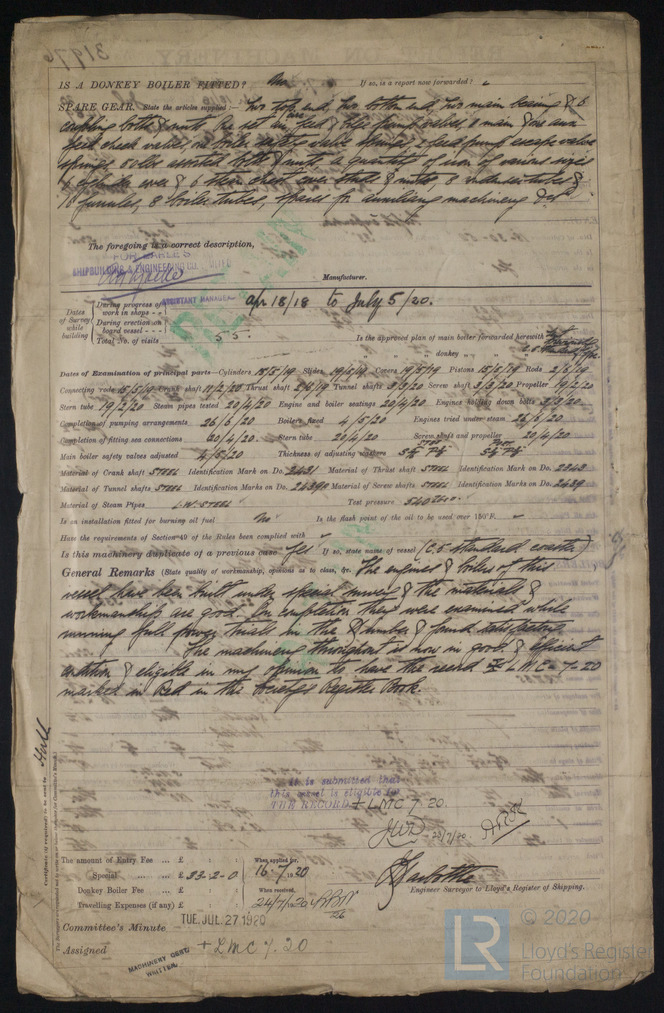 IS A DONKEY BOILER FITTED? No If so, is a report now forwarded?
SPARE GEAR. State the articles supplied:— Two top end, two bottom end, two main bearing & 6
coupling bolts & nuts. One set in feed & bilge pump valves, 1 main & one aux
feed check valves, one boiler safety valve spring, 2 feed pump escape valve
springs, 50 lbs assorted bolts & nuts a quantity of iron of various sizes
& 6 steam chest cover studs & nuts, 8 condenser tubes &
16 ferrules, 8 boiler tubes, spares for auxiliary machinery &c
The foregoing is a correct description,
FOR EARLE'S
SHIPBUILDING & ENGINEERING CO. LIMITED
ASSISTANT MANAGER
Manufacturer.
Dates of Survey while building
During progress of work in shops - - Apr 18/18 to July 5/20.
During erection on board vessel - - -
Total No. of visits 55.
Is the approved plan of main boiler forwarded herewith
" " " donkey " "
Dates of Examination of principal parts—Cylinders 15/5/19 Slides 19/5/19 Covers 19/5/19 Pistons 15/5/19 Rods 2/6/19
Connecting rods 15/5/19 Crank shaft 11/2/20 Thrust shaft 2/5/19 Tunnel shafts 3/3/20 Screw shaft 3/3/20 Propeller 19/2/20
Stern tube 19/2/20 Steam pipes tested 20/4/20 Engine and boiler seatings 20/4/20 Engines holding down bolts 3/3/20.
Completion of pumping arrangements 26/6/20 Boilers fixed 4/5/20 Engines tried under steam 26/6/20
Completion of fitting sea connections 20/4/20 Stern tube 20/4/20 Screw shaft and propeller 20/4/20
Main boiler safety valves adjusted 4/5/20 Thickness of adjusting washers
Material of Crank shaft STEEL Identification Mark on Do. 2431 Material of Thrust shaft STEEL Identification Mark on Do. 2343
Material of Tunnel shafts STEEL Identification Marks on Do. 2439A Material of Screw shafts STEEL Identification Marks on Do. 2439
Material of Steam Pipes L.W. STEEL Test pressure 540 lbs.
Is an installation fitted for burning oil fuel No Is the flash point of the oil to be used over 150°F.
Have the requirements of Section 49 of the Rules been complied with
Is this machinery duplicate of a previous case Yes If so, state name of vessel (C.5 standard coaster)
General Remarks (State quality of workmanship, opinions as to class, &c. The engines & boilers of this
vessel have been built under special survey & the materials &
workmanship are good. On completion they were examined while
running full power trials in the Humber & found satisfactory
The machinery throughout is now in good & efficient
condition & eligible in my opinion to have the record + LMC - 7-20
marked in Red in the Society's Register Book.
It is submitted that
this vessel is eligible for
THE RECORD + LMC 7.20.
JWD 26/7/20.
Certificate (if required) to be sent to Hull
The amount of Entry Fee ... £ : :
Special ... £ 93-2-0
Donkey Boiler Fee ... £ : :
Travelling Expenses (if any) £ : :
When applied for,
16.7.1920
When received,
24/7/20
Engineer Surveyor to Lloyd's Register of Shipping.
Committee's Minute TUE. JUL. 27 1920
Assigned + LMC 7.20
MACHINERY CERT.
WRITTEN.
LR
© 2020
Lloyd's Register
Foundation